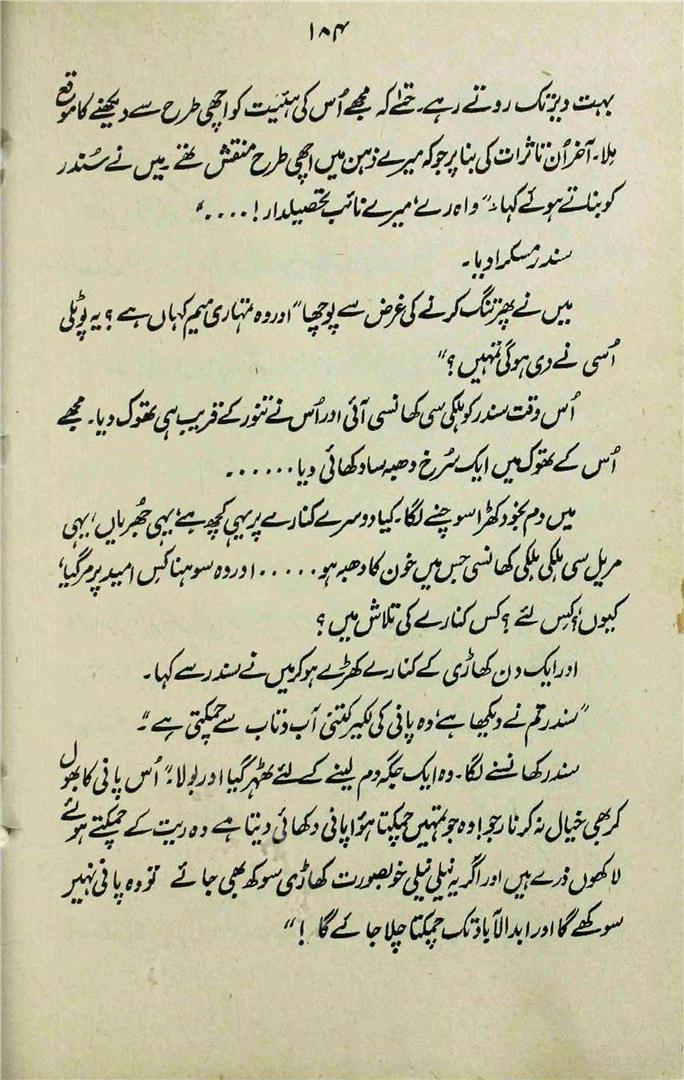 ۱۸۴
بہت دیر تک روتے رہے۔ حتےٰ کہ مجھے اُس کی ہئیت کو اچھی طرح سے دیکھنے کا موقع
مِلا۔ آخر اُن تاثرات کی بنا پر جو کہ میرے ذہن میں اچھی طرح منقش تھے۔ میں نے سُندر
کو بناتے ہوئے کہا:۔ "واہ رے، میرے نائب تحصیلدار!...."
سندر مسکرا دیا۔
میں نے پھر تنگ کرنے کی غرض سے پوچھا "اور وہ تمہاری میم کہاں ہے؟ یہ پوٹلی
اُسی نے دی ہوگی تمہیں؟"
اُس وقت سندر کو ہلکی سی کھانسی آئی اور اُس نے تنور کے قریب ہی تھوک دیا۔ مجھے
اُس کے تھوک میں ایک سُرخ دھبہ سا دکھائی دیا......۔
میں دم بخود کھڑا سوچنے لگا۔ کیا دوسرے کنارے پر یہی کچھ ہے، یہی جُھریاں، یہی
مریل سی ہلکی ہلکی کھانسی جس میں خون کا دھبہ ہو..... اور وہ سوہنا کس امید پر مر گیا،
کیوں؟ کِس لئے؟ کس کنارے کی تلاش میں؟
اور ایک دن کھاڑی کے کنارے کھڑے ہو کر میں نے سندر سے کہا۔
"سندر تم نے دیکھا ہے، وہ پانی کی لکیر کتنی آب و تاب سے چمکتی ہے"۔
سندر کھانسنے لگا۔ وہ ایک جگہ دم لینے کے لئے ٹھہر گیا اور بولا۔ "اُس پانی کا بھول
کر بھی خیال نہ کرنا رجو! وہ جو تمہیں چمکتا ہؤا پانی دکھائی دیتا ہے وہ ریت کے چمکتے ہوئے
لاکھوں ذرے ہیں اور اگر یہ نیلی نیلی خوبصورت کھاڑی سوکھ بھی جائے تو وہ پانی نہیں
سوکھے گا اور ابدالآباد تک چمکتا چلا جائے گا!"